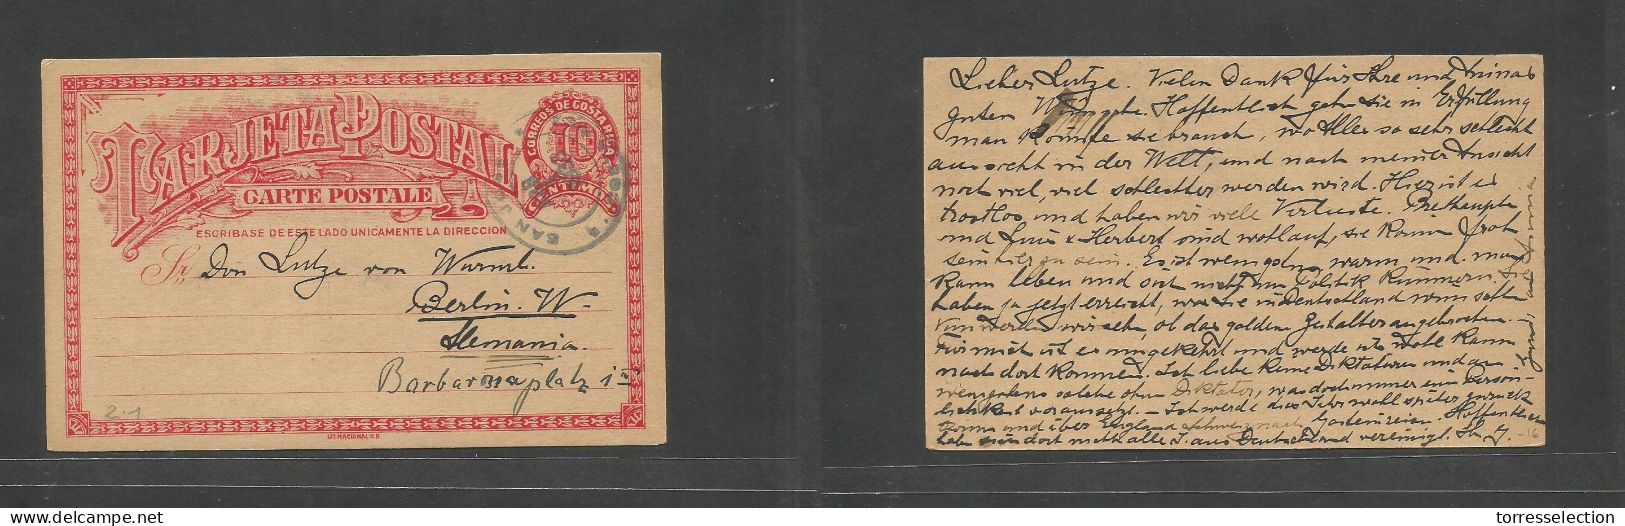 TARJETA POSTAL
CARTE POSTALE
CORREOS DE COSTA RICA
10
CENTIMOS
ESCRIBASE DE ESTE LADO UNICAMENTE LA DIRECCION
SAN JOSE
Sr. Don Lutze von Wurmb.
Berlin. W.
Alemania.
Barbarossaplatz 1
2.1
LIT. NACIONAL C.R.
Lieber Lutze. Vielen Dank für Ihre und Aninas
guten Wünsche. Hoffentlich gehn sie in Erfüllung
man könnte sie brauch, wo Alles so sehr schlecht
aussieht in der Welt, und nach meiner Ansicht
noch viel, viel schlechter werden wird. Hier ist es
trostlos, und haben wir viele Verluste.
und & Herbert sind wohlauf, sie können froh
sein hier zu sein. Es ist wenigstens warm und man
kann leben und sich nicht um Politik kümmern. Sie
haben ja jetzt erreicht, was Sie in Deutschland wünscht
Nun werden wir sehn, ob das golden Zeitalter angebrochen. -
Für mich ist es umgekehrt und werde ich wohl kaum
nach dort kommen. Ich liebe keine Diktaturen und am
wenigsten solche ohne Diktator, was doch immer ein Persön-
lichkeit voraussetzt. - Ich werde dies Jahr wohl später zurück
und über England nach Gastein reisen. Hoffentlich
dort nicht alle aus Deutschland vereinigt. Ihr
-16
torresselection